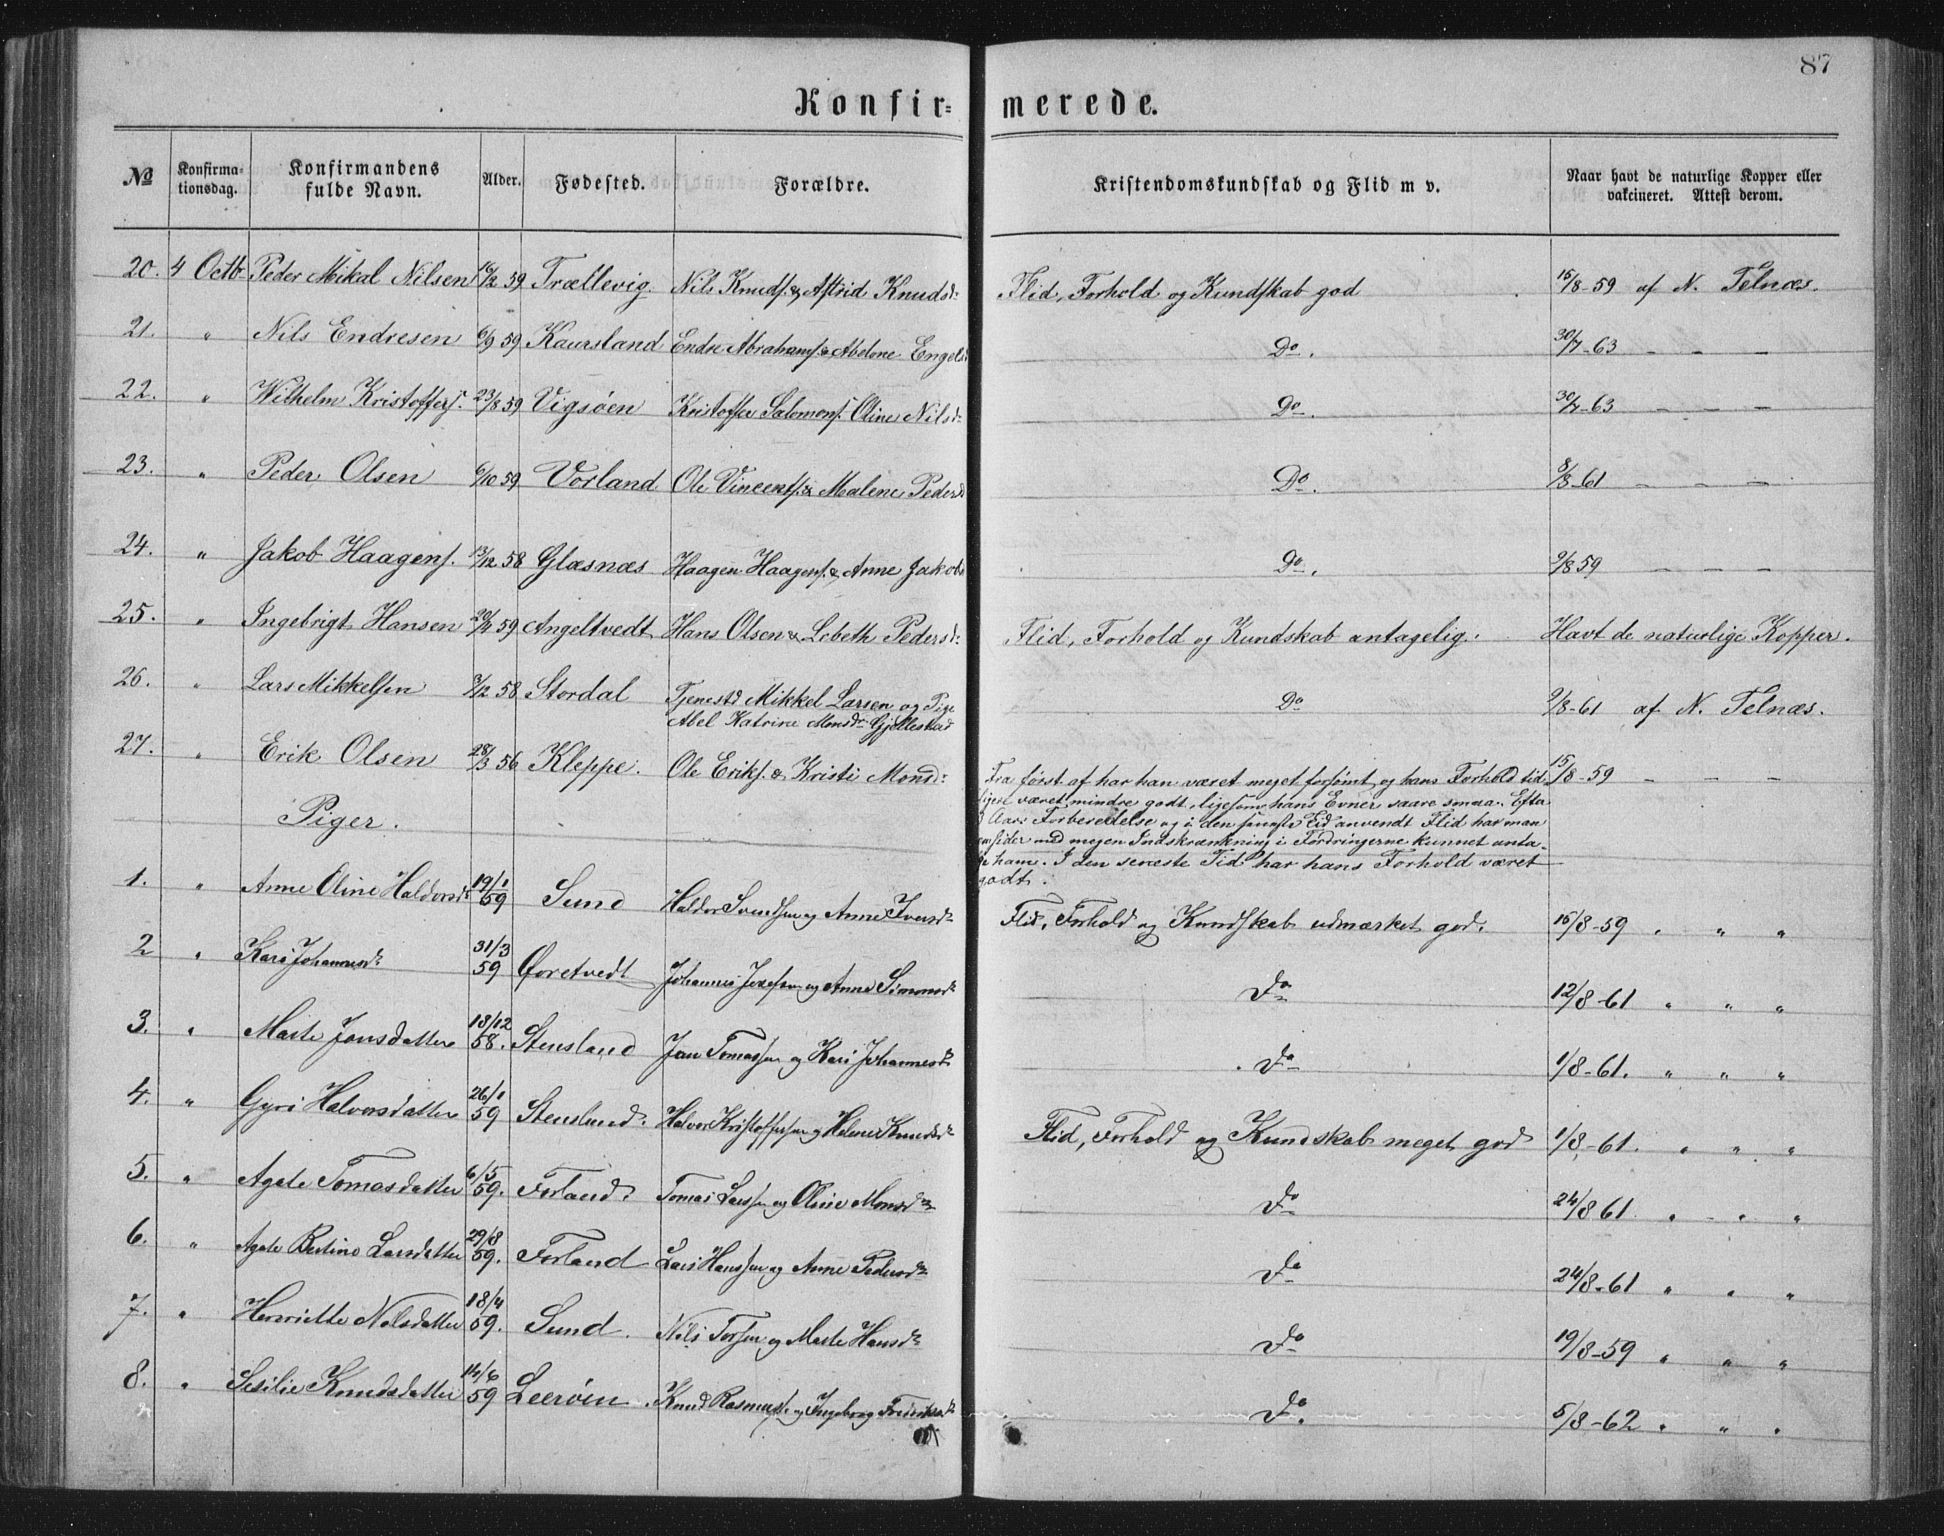 87
Konfir- merede.
No Konfirmationsdag. Konfirmandens fulde Navn. Alder. Fødested. Forældre. Kristendomskundskab og Flid m v. Naar havt de naturlige Kopper eller vakcineret. Attest derom.
20. 4 Octb. Peder Mikal Nilsen 16/2 59 Trællevig. Nils Knuds. & Astrid Knudsd: Flid, Forhold og Kundskab god 15/8-59 af N. Telnæs.
21. " Nils Endresen 6/9 59 Kaursland Endre Abrahams. & Abelone Engelsd Do. 30/7-63 — — —
22. " Wilhelm Kristoffers. 23/8 59 Vigsöen Kristoffer Salomons. Oline Nilsd: Do. 30/7-63 — — —
23. " Peder Olsen 6/10 59 Vorland Ole Vincents. & Malene Pedersd Do. 8/8-61 — — —
24. " Jakob Haagens. 13/12 58 Glæsnæs Haagen Haagens. & Anne Jakobsd Do. 9/8 59 — — —
25. " Ingebrigt Hansen 20/4 59 Angeltvedt Hans Olsen & Lsbeth Pedersd: Flid, Forhold og Kundskab antagelig. Havt de naturlige Kopper.
26. " Lars Mikkelsen 3/12 58 Stordal Tjenestd Mikkel Larsen og Pige Do 9/8-61 af N. Telnæs.
Abel Katrine Monsdr Gjellestad
27. " Erik Olsen 28/3 56 Kleppe. Ole Eriks. & Kristi Monsd: 15/8-59 — — —
Fra først af har han været meget forsömt og hans Forhold tid-
ligere været mindre godt, ligesom hans Evner saare smaa. Efter
Aars Forberedelse og i den seneste Tid anvendt Flid har man
omsider med megen Indskrænkning i Fordringerne kunnet anta-
ge ham. I den seneste Tid har hans Forhold været
godt.
Piger.
1. " Anne Oline Haldorsdr 19/1 59 Sund Haldor Svendsen og Anne Iversdr Flid, Forhold og Kundskab udmærket god. 15/8-59 " " "
2 " Kari Johannesdr 31/3 59 Øvretvedt Johannes Josefsen og Anna Simonsdr Do 12/8-61 " " "
3. " Marte Jonsdatter 13/12 58. Stensland Jon Tomassen og Kari Johannesdr Do 1/8-61. " " "
4. " Gyri Halvorsdatter 26/1 59 Stensland. Halvor Kristoffersen og Helene Knudsdr Flid, Forhold og Kundskab meget god 1/8-61. " " "
5. " Agate Tomasdatter 6/5 59. Forland. Tomas Larssen og Oline Monsdr Do 24/8 61. " " "
6. " Agate Bertine Larsdatter 29/8 59. Forland Lars Hanssen og Anne Pedersdr Do 24/8-61 " " "
7. " Henriette Nilsdatter 18/4 59. Sund. Nils Torsen og Marte Hansdr Do 19/8-59 " " "
8. " Sesilie Knudsdatter 14/6 59 Leeröen. Knud Rasmussen og Ingeborg Fredriksdr Do. 5/8-62 " " "